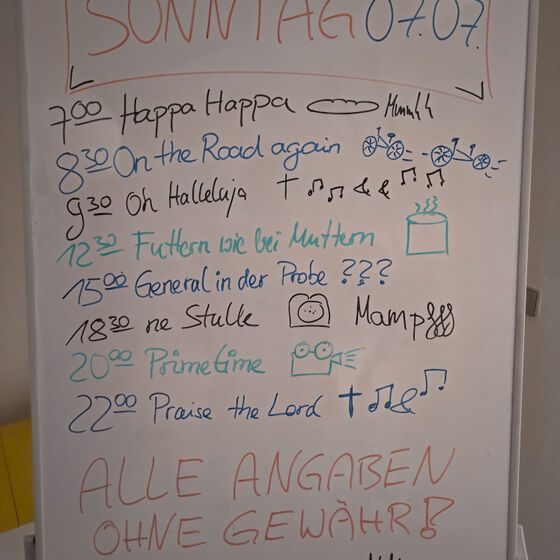 SONNTAG 07.07.
7:00 Happa Happa Mmmhh
8:30 On the Road again
9:30 Oh Halleluja
12:30 Futtern wie bei Muttern
15:00 General in der Probe ???
18:30 ne Stulle Mampfff
20:00 Primetime
22:00 Praise the Lord
ALLE ANGABEN
OHNE GEWÄHR!